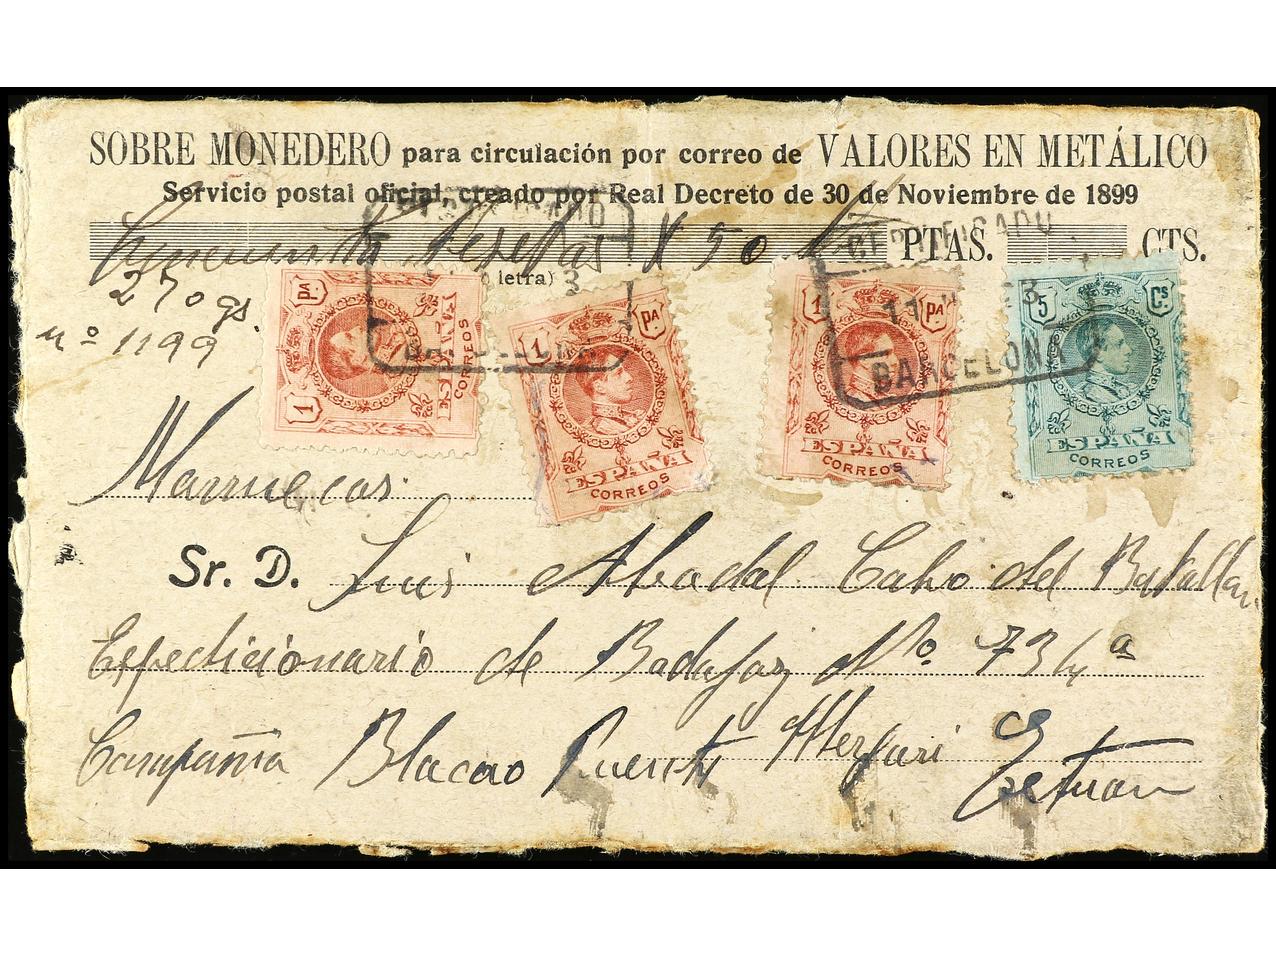 SOBRE MONEDERO para circulación por correo de VALORES EN METÁLICO
Servicio postal oficial, creado por Real Decreto de 30 de Noviembre de 1899
Cincuenta Pesetas # 50 PTAS. CTS.
letra)
270 gs.
nº 1199
1 PA ESPAÑA CORREOS
1 PA ESPAÑA CORREOS
1 PA ESPAÑA CORREOS
5 Cs ESPAÑA CORREOS
CERTIFICADO
BARCELONA
CERTIFICADO
11
BARCELONA
Marruecos
Sr. D. Luis Abadal Cabo del Batallón
Expedicionario de Badajoz Nº 73 4ª
Compañía Blocao Puente
Tetuan